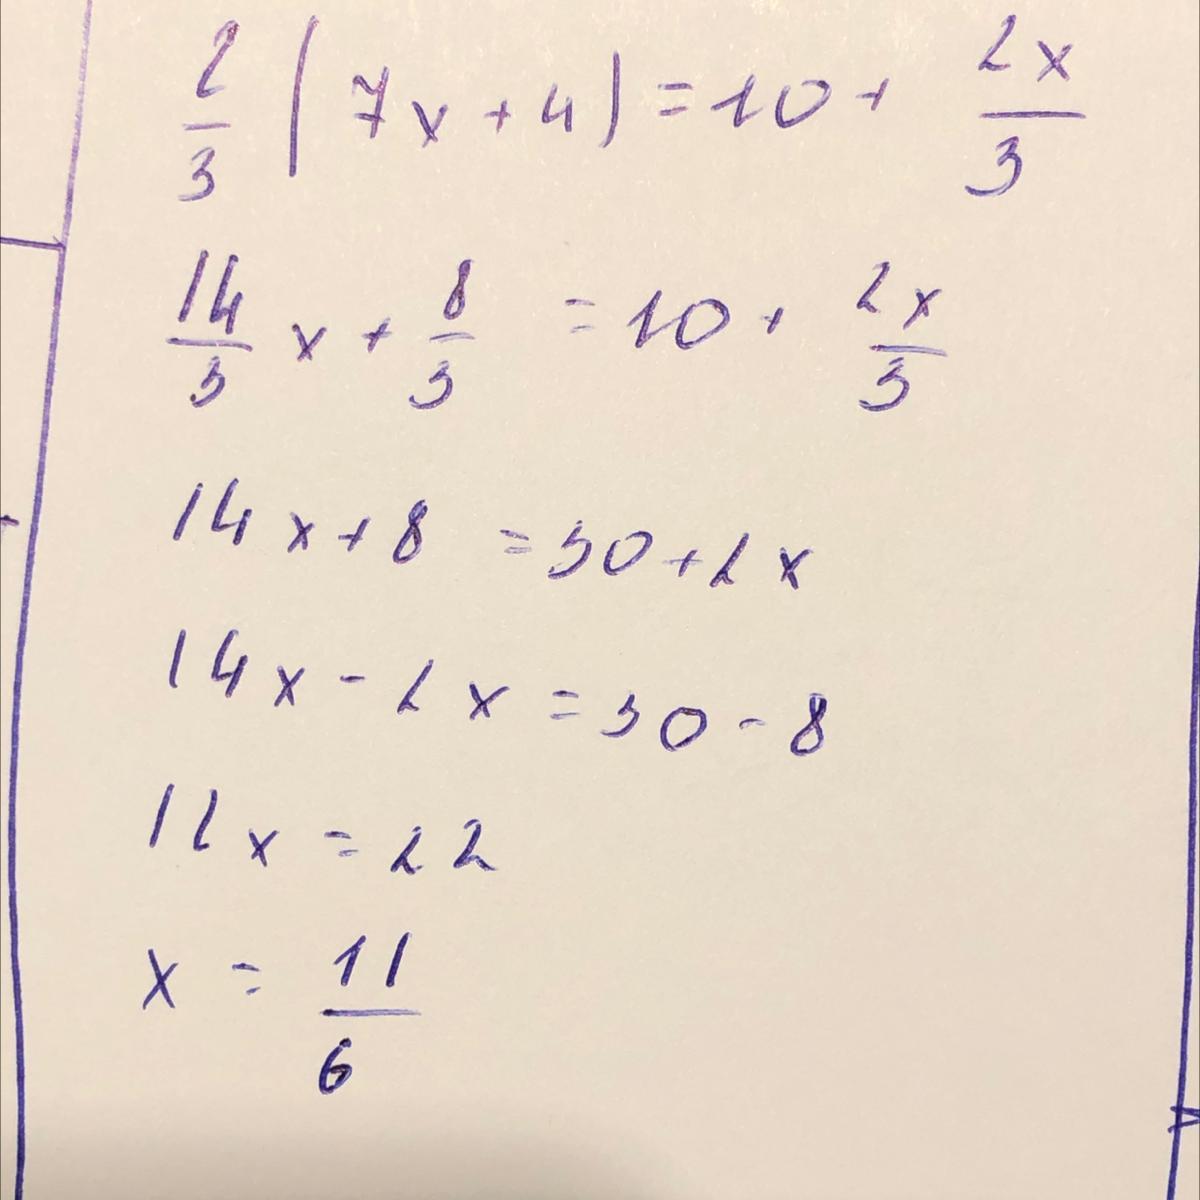 2/3 (7x+4) = 10 + 2x/3
14/3 x + 8/3 = 10 + 2x/3
14x + 8 = 30 + 2x
14x - 2x = 30 - 8
12x = 22
x = 11/6